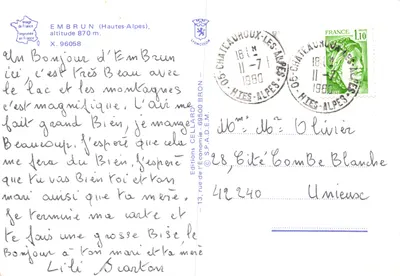 EMBRUN (Hautes Alpes),
altitude 870 m.
X. 96058
Un Bonjour d'Embrun
ici, c'est très Beau avec
le lac et les montagnes
c'est magnifique. L'air me
fait grand Bien, je mange
Beaucoup. J'espère que cela
me fera du Bien. J'espère
que tu vas Bien toi et ton
mari ainsi que ta mère.
Je termine ma carte et
te fais une grosse Bise, le
Bonjour à ton mari et ta mère
Lili
Editions CELLARD
13, rue de l'Economie 69500 BRON
S.P.A.D.E.M.
05 CHATEAUROUX-LES-ALPES
18H
11-7
1980
HTES-ALPES
05 CHATEAUROUX-LES-ALPES
18H
11-7
1980
HTES-ALPES
FRANCE
1,10
Mme Mr Olivier
28, Cité Combe Blanche
42240 Unieux